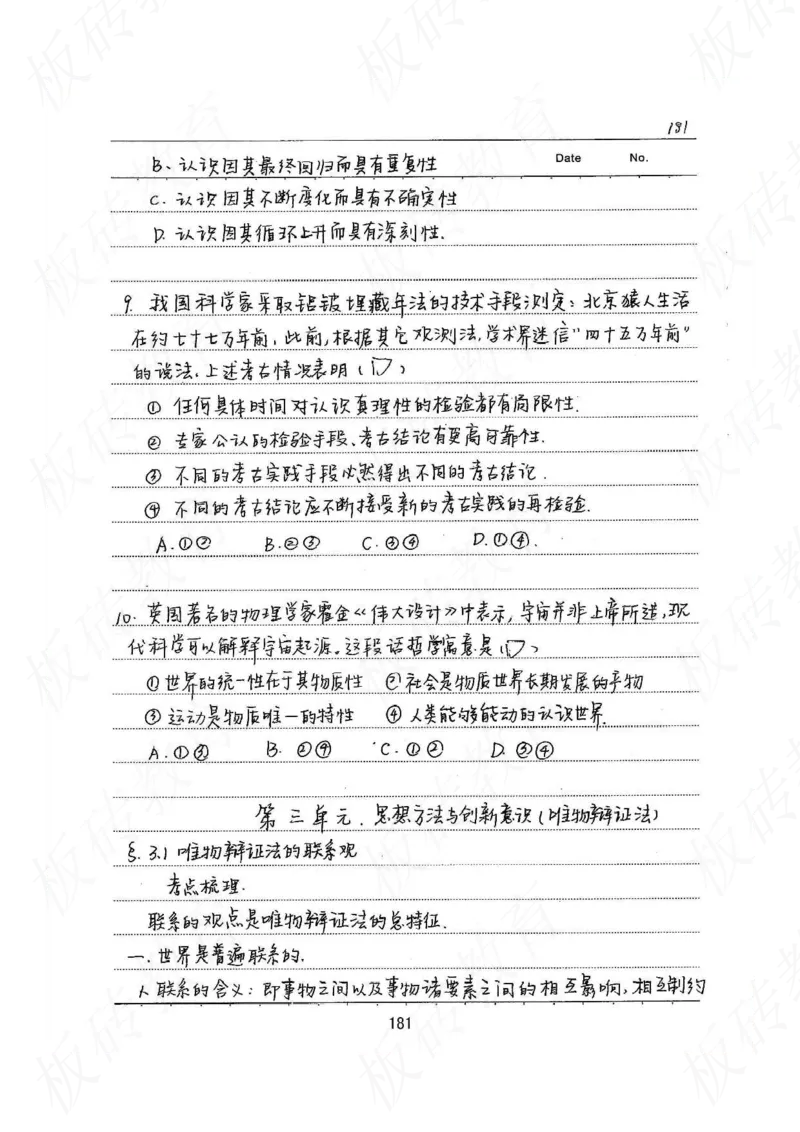 181
Date No.
B、认识因其最终回归而具有重复性
C. 认识因其不断变化而具有不确定性
D. 认识因其循环上升而具有深刻性.
9. 我国科学家采取铝铍埋藏年法的技术手段测定：北京猿人生活
在约七十七万年前，此前，根据其它观测法，学术界迷信“四十五万年前”
的说法。上述考古情况表明（D）
① 任何具体时间对认识真理性的检验都有局限性.
② 专家公认的检验手段、考古结论有更高可靠性.
③ 不同的考古实践手段必然得出不同的考古结论.
④ 不同的考古结论应不断接受新的考古实践的再检验.
A.①② B.②③ C.③④ D.①④.
10. 英国著名的物理学家霍金《伟大设计》中表示，宇宙并非上帝所造，现
代科学可以解释宇宙起源。这段话哲学寓意是（D）
①世界的统一性在于其物质性 ②社会是物质世界长期发展的产物
③ 运动是物质唯一的特性 ④ 人类能够能动的认识世界.
A.①③ B. ②④ C.①② D. ③④
第三单元. 思想方法与创新意识（唯物辩证法）
§. 3.1 唯物辩证法的联系观
考点梳理.
联系的观点是唯物辩证法的总特征.
一. 世界是普遍联系的.
1. 联系的含义：即事物之间以及事物诸要素之间的相互影响，相互制约
181
板砖教育